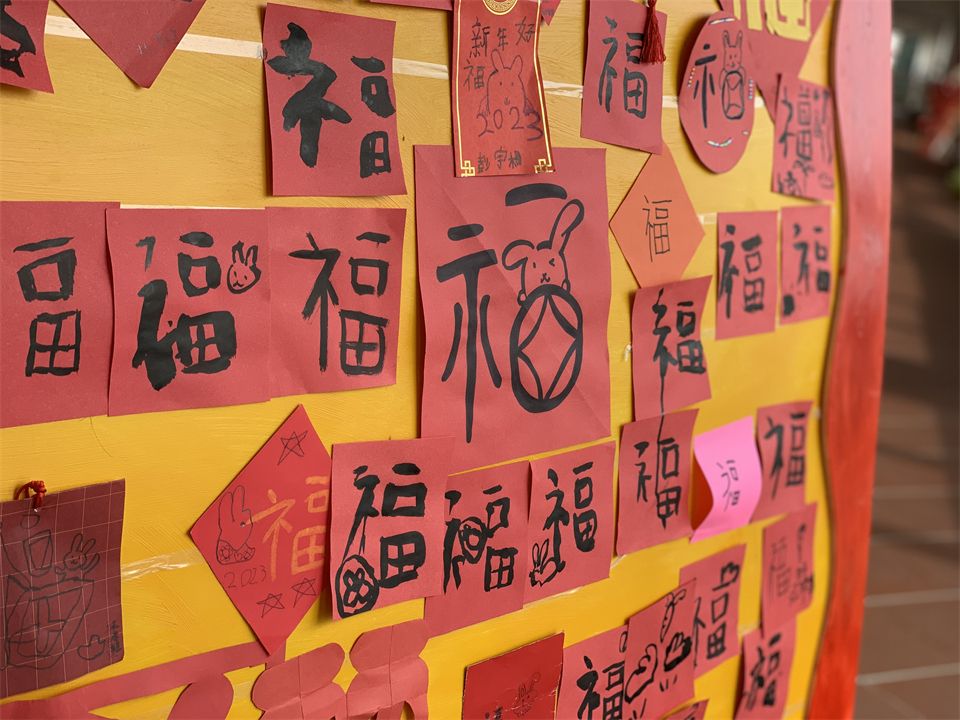 福
新年好
福
2023
福
福
福
福
福
福
福
福
福
福
福
福
2023
福
福
福
福
福
福
福
福
福
福